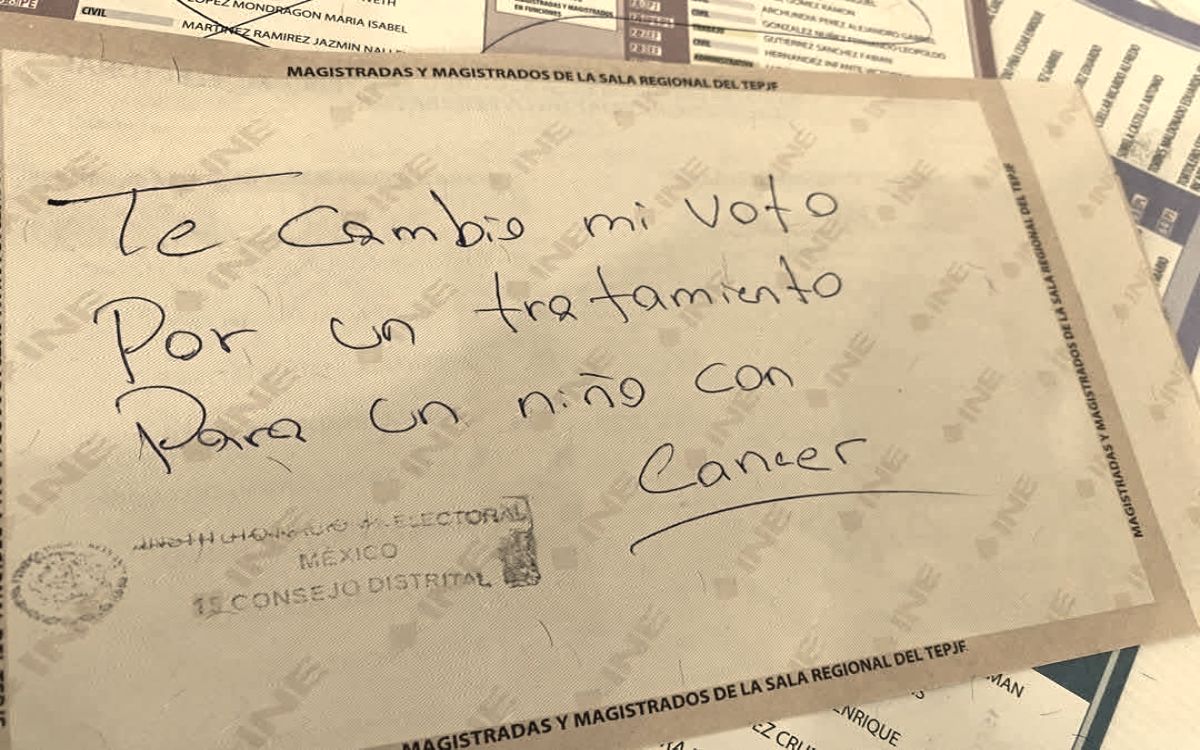 LOPEZ MONDRAGON MARIA ISABEL
CIVIL
MARTINEZ RAMIREZ JAZMIN
EN FUNCIONES
CIVIL
GONZALEZ NUÑEZ FERNANDO LEOPOLDO
GUTIERREZ SANCHEZ FABIAN
MAGISTRADAS Y MAGISTRADOS DE LA SALA REGIONAL DEL TEPJF
Te Cambio mi voto
Por un tratamiento
Para un niño con
Cancer
ELECTORAL
MÉXICO
15 CONSEJO DISTRITAL
INE
MAGISTRADAS Y MAGISTRADOS DE LA SALA REGIONAL DEL TEPJF
MAGISTRADAS Y MAGISTRADOS DE LA SALA REGIONAL DEL TEPJF
ENRIQUE